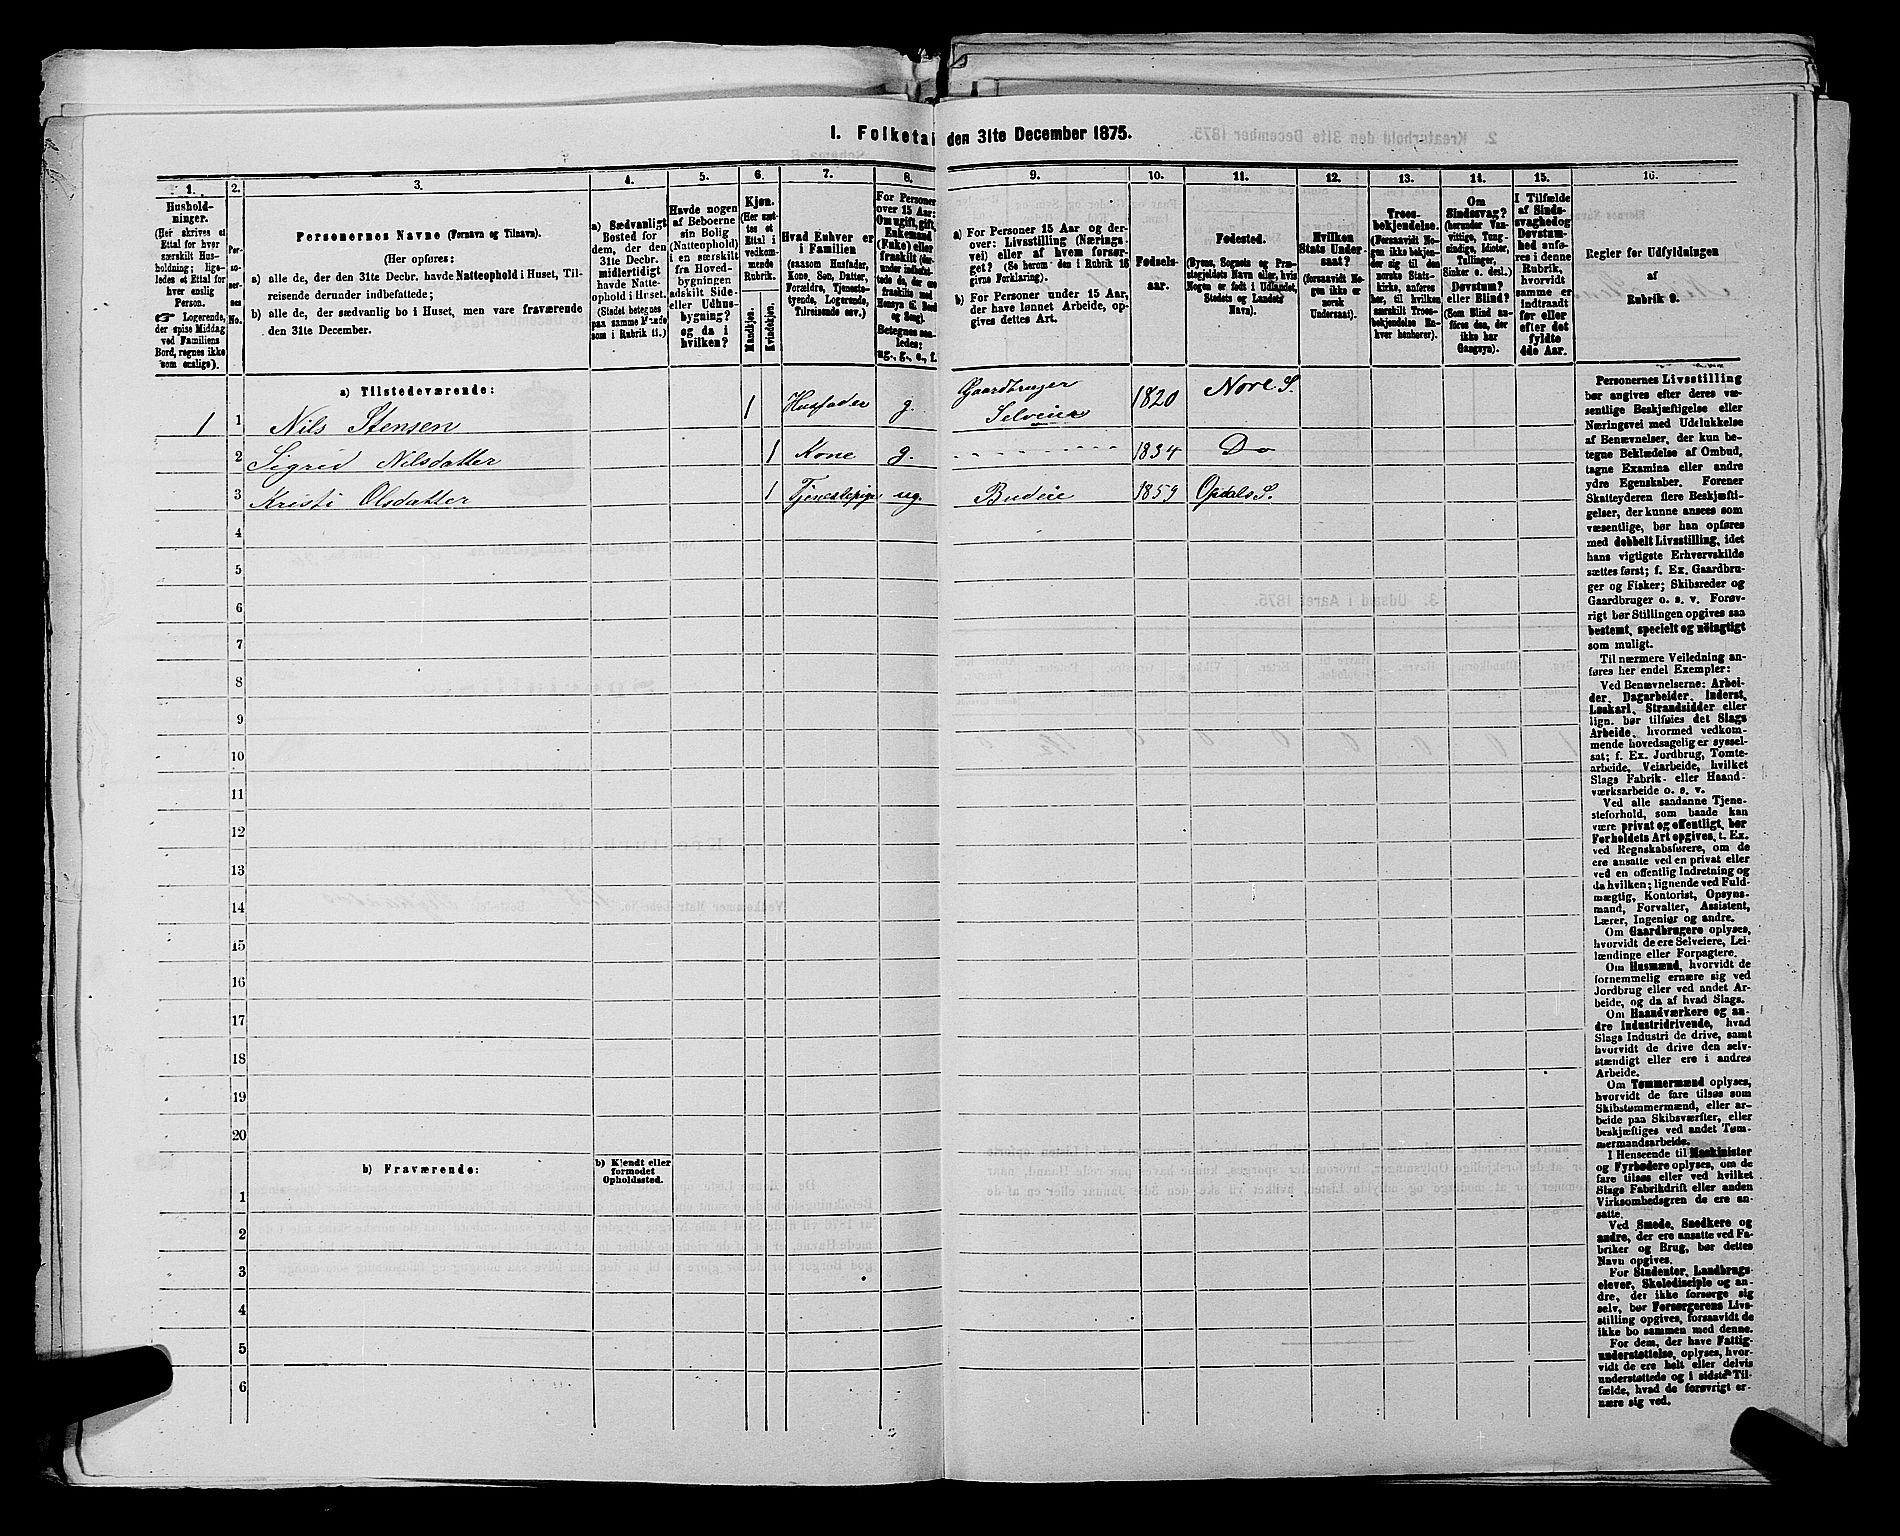 I. Folketal den 31te December 1875.
1. 2. 3. 4. 5. 6. 7. 8. 9. 10. 11. 12. 13. 14. 15. 16.
Hushold-
ninger.
(Her skrives et
Ettal for hver
særskilt Hus-
holdning; lige-
ledes et Ettal for
hver enslig
Person.
☞ Logerende,
der spise Middag
ved Familiens
Bord, regnes ikke
som enslige).
Per-
so-
ner-
nes
No.
Personernes Navne (Fornavn og Tilnavn).
(Her opføres:
a) alle de, der den 31te Decbr. havde Natteophold i Huset, Til-
reisende derunder indbefattede;
b) alle de, der sædvanlig bo i Huset, men vare fraværende
den 31te December.
a) Sædvanligt
Bosted for
dem, der den
31te Decbr.
midlertidigt
havde Natte-
ophold i Huset.
(Stedet betegnes
paa samme Maade
som i Rubrik 11.)
Havde nogen
af Beboerne
sin Bolig
(Natteophold)
i en særskilt
fra Hoved-
bygningen
adskilt Side-
eller Udhus-
bygning?
og da i
hvilken?
Kjøn.
(Her sæt-
tes et
Ettal i
vedkom-
mende
Rubrik.
Mandkjøn.
Kvindekjøn.
Hvad Enhver er
i Familien
(saasom Husfader,
Kone, Søn, Datter,
Forældre, Tjeneste-
tyende, Logerende,
Tilreisende osv.)
For Personer
over 15 Aar:
Om ugift, gift,
Enkemand
(Enke) eller
fraskilt
Betegnes saa-
ledes:
ug., g., e., f.
a) For Personer 15 Aar og der-
over: Livsstilling (Nærings-
vei) eller af hvem forsør-
get? (Se herom den i Rubrik 16
givne Forklaring).
b) For Personer under 15 Aar,
der have lønnet Arbeide, op-
gives dettes Art.
Fødsels-
aar.
Fødested.
(Byens, Sognets og Præ-
stegjeldets Navn eller, hvis
Nogen er født i Udlandet,
Stedets og Landets
Navn).
Hvilken
Stats Under-
saat?
(forsaavidt No-
gen ikke er
norsk
Undersaat).
Troes-
bekjendelse.
(Forsaavidt No-
gen ikke bekjen-
der sig til den
norske Stats-
kirke, anføres
her, til hvilken
særskilt Troes-
bekjendelse En-
hver henhører).
Om
Sindssvag?
(herunder Van-
vittige, Tung-
sindige, Idioter,
Tullinger,
Sinker o. desl.)
Døvstum?
eller Blind?
(Som Blind an-
føres den, der
ikke har
Gangsyn).
I Tilfælde
af Sinds-
svaghed og
Døvstum-
hed anfø-
res i denne
Rubrik,
hvorvidt
samme er
indtraadt
før eller
efter det
fyldte
4de Aar.
Regler for Udfyldningen
af
Rubrik 9.
a) Tilstedeværende:
1 1 Nils Stensen 1 Husfader g. Gaardbruger Selveier 1820 Nore S.
2 Sigrid Nilsdatter 1 Kone g. - - - - - - - 1834 Do
3 Kristi Olsdatter 1 Tjenestepige ug. Budeie 1859 Opdals S.
4
5
6
7
8
9
10
11
12
13
14
15
16
17
18
19
20
b) Fraværende:
b) Kjendt eller
formodet
Opholdssted.
1
2
3
4
5
6
Personernes Livsstilling
bør angives efter deres væ-
sentlige Beskjæftigelse eller
Næringsvei med Udelukkelse
af Benævnelser, der kun be-
tegne Beklædelse af Ombud,
tagne Examina eller andre
ydre Egenskaber. Forener
Skatteyderen flere Beskjæfti-
gelser, der kunne ansees som
væsentlige, bør han opføres
med dobbelt Livsstilling, idet
hans vigtigste Erhvervskilde
sættes først; f. Ex. Gaardbru-
ger og Fisker; Skibsreder og
Gaardbruger o. s. v. Forøv-
rigt bør Stillingen opgives saa
bestemt, specielt og nøiagtigt
som muligt.
Til nærmere Veiledning an-
føres her endel Exempler:
Ved Benævnelserne: Arbei-
der, Dagarbeider, Inderst,
Løskarl, Strandsidder eller
lign. bør tilføies det Slags
Arbeide, hvormed vedkom-
mende hovedsagelig er syssel-
sat; f. Ex. Jordbrug, Tomte-
arbeide, Veiarbeide, hvilket
Slags Fabrik- eller Haand-
værksarbeide o. s. v.
Ved alle saadanne Tjene-
steforhold, som baade kan
være privat og offentligt, bør
Forholdets Art opgives, t. Ex.
ved Regnskabsførere, om de
ere ansatte ved en privat eller
ved en offentlig Indretning og
da hvilken; lignende ved Fuld-
mægtig, Kontorist, Opsyns-
mand, Forvalter, Assistent,
Lærer, Ingeniør og andre.
Om Gaardbrugere oplyses,
hvorvidt de ere Selveiere, Lei-
lændinge eller Forpagtere.
Om Husmænd, hvorvidt de
fornemmelig ernære sig ved
Jordbrug eller ved andet Ar-
beide, og da af hvad Slags.
Om Haandværkere og an-
dre Industridrivende, hvad
Slags Industri de drive, samt
hvorvidt de drive den selv-
stændigt eller ere i andres
Arbeide.
Om Tømmermænd oplyses,
hvorvidt de fare tilsøs som
Skibstømmermænd, eller ar-
beide paa Skibsværfter, eller
beskjæftiges ved andet Tøm-
mermandsarbeide.
I Henseende til Maskinister
og Fyrbødere oplyses, om de
fare tilsøs eller ved hvilket
Slags Fabrikdrift eller anden
Virksomhedsgren de ere an-
satte.
Ved Smede, Snedkere og
andre, der ere ansatte ved Fa-
briker og Brug, bør dettes
Navn opgives.
For Studenter, Landbrugs-
elever, Skoledisciple og an-
dre, der ikke forsørge sig
selv, bør Forsørgerens Livs-
stilling opgives, forsaavidt de
ikke bo sammen med denne.
For dem, der have Fattig-
understøttelse, oplyses, hvor-
vidt de ere helt eller delvis
understøttede og i sidste Til-
fælde, hvad de forøvrigt er-
nære sig ved.